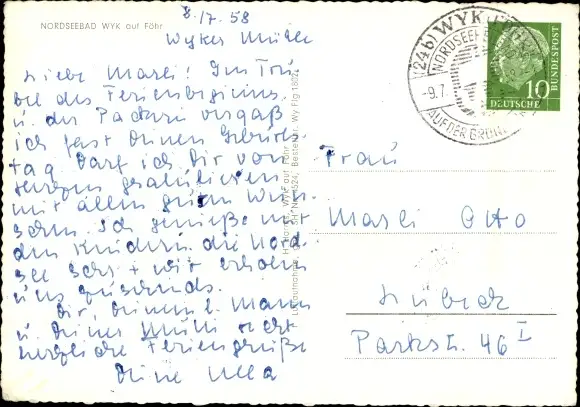 NORDSEEBAD WYK auf Föhr
8.17.58
Wyker Mühle
Liebe Marli! Im Tru
bel des Ferienbeginns
u. der Packerei vergaß
ich fast Deinen Geburts
tag. Darf ich Dir von
Herzen gratulieren
mit allen guten Wün
schen. Ich genieße mit
den Kindern die Nord
see sehr + wir erholen
uns zusehends.
Dir, Deinem l. Mann
u. Deiner Mutti recht
herzliche Feriengrüße
Deine Ulla
(24b) WYK
NORDSEE
-9.7.
AUF DER
10
DEUTSCHE
BUNDESPOST
Frau
Marli Otto
Lübeck
Parkstr. 46 I